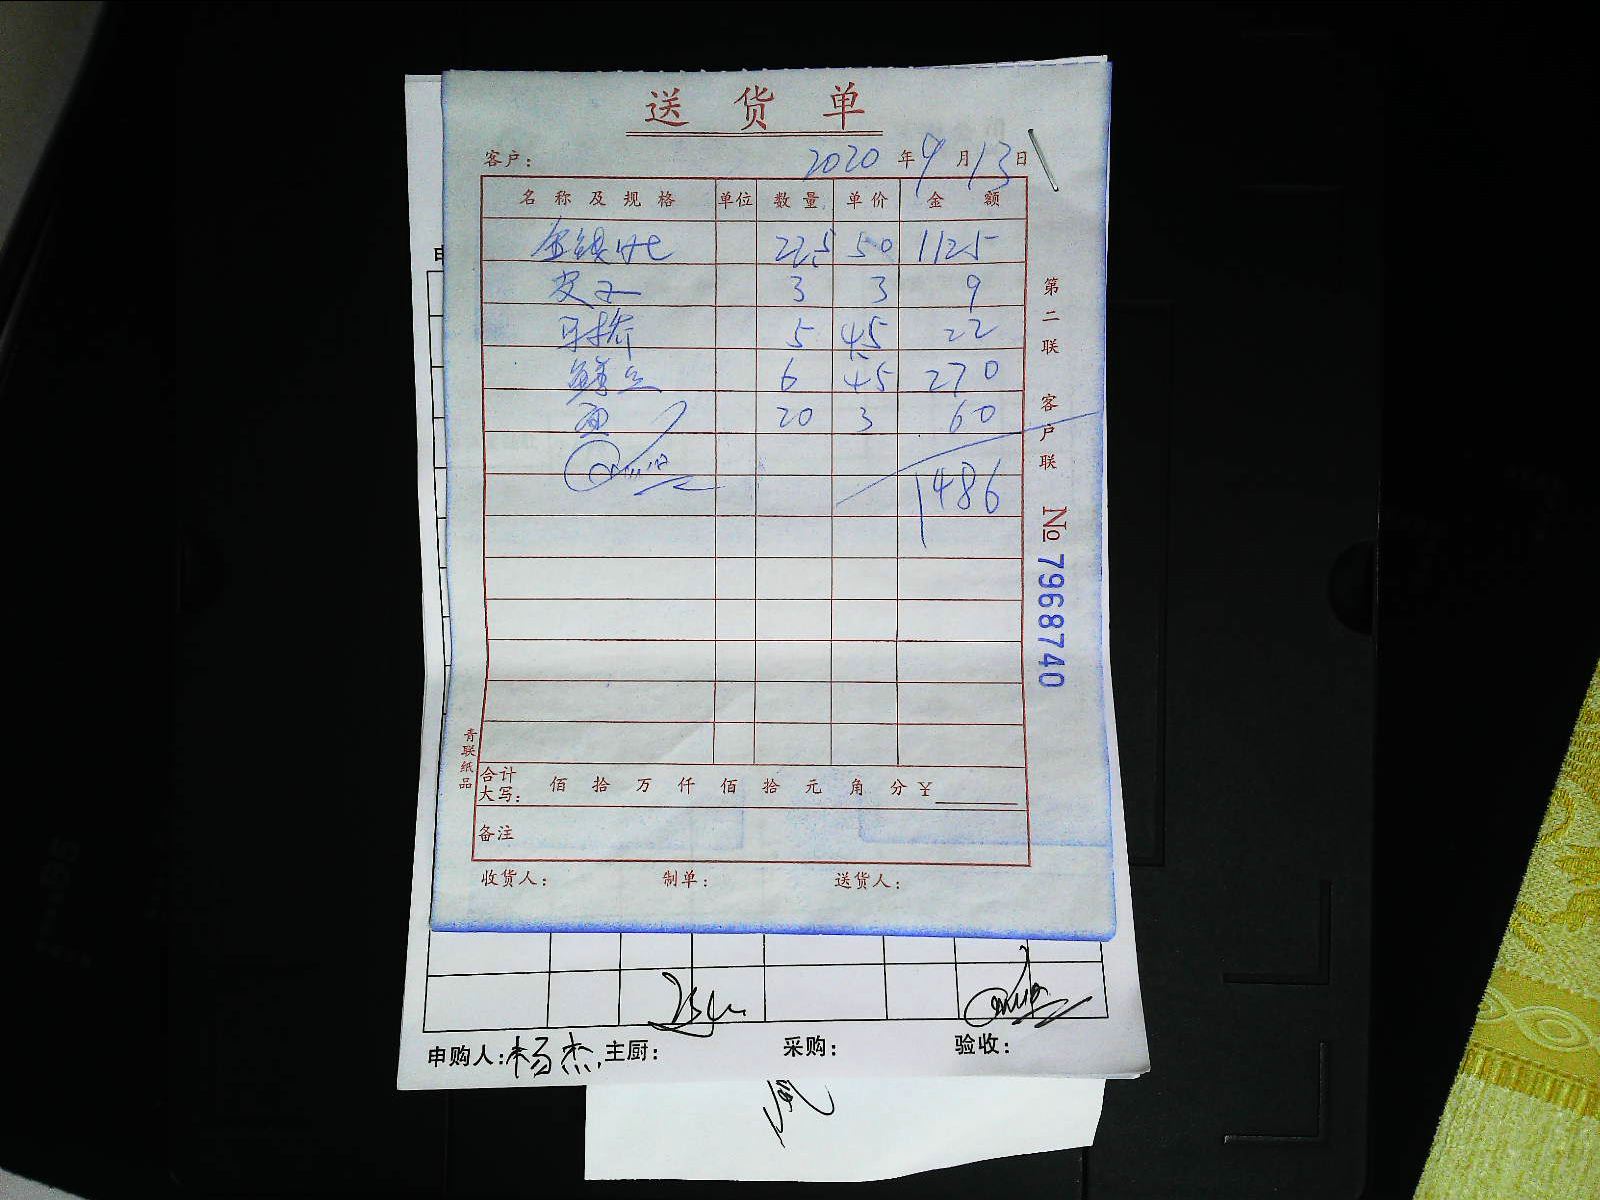 送货单
客户： 2020年9月13日
名称及规格 单位 数量 单价 金额
22.5 50 1125
皮子 3 3 9
5 4.5 22
6 45 270
20 3 60
1486
第二联 客户联
No 7968740
青联纸品
合计大写： 佰 拾 万 仟 佰 拾 元 角 分 ¥
备注
收货人： 制单： 送货人：
申购人：杨杰 主厨： 采购： 验收：